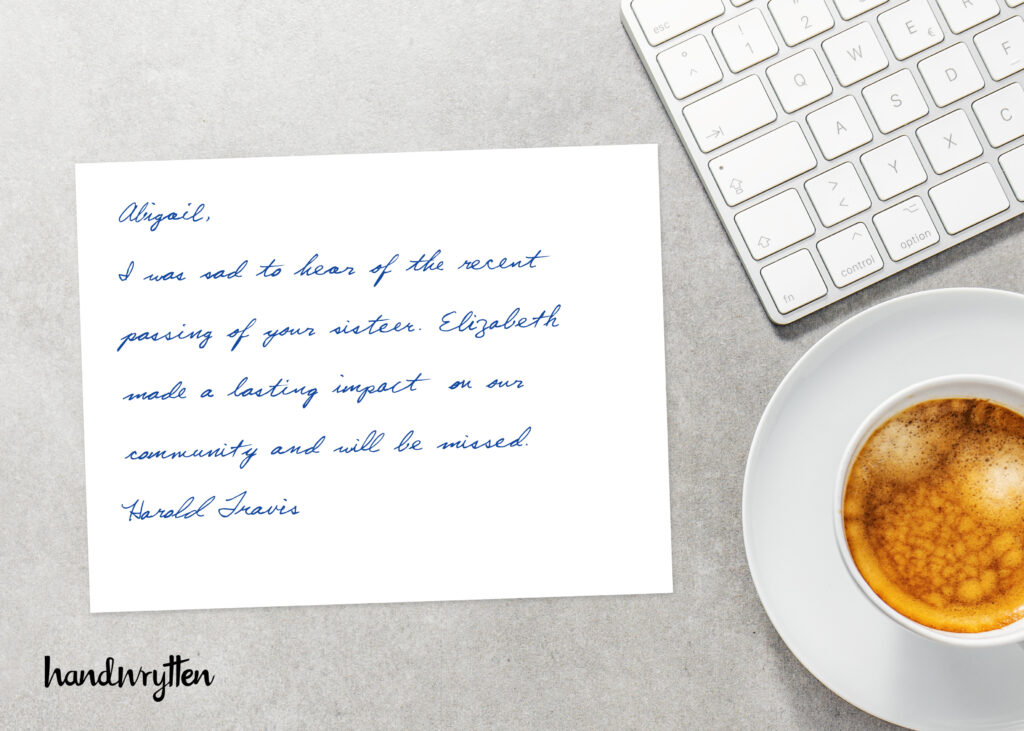 Abigail,
I was sad to hear of the recent
passing of your sisteer. Elizabeth
made a lasting impact on our
community and will be missed.
Harold Travis
handwrytten
esc
° ^ ! 1 " 2
Q W E € R
A S D F
> < Y X C
fn control option